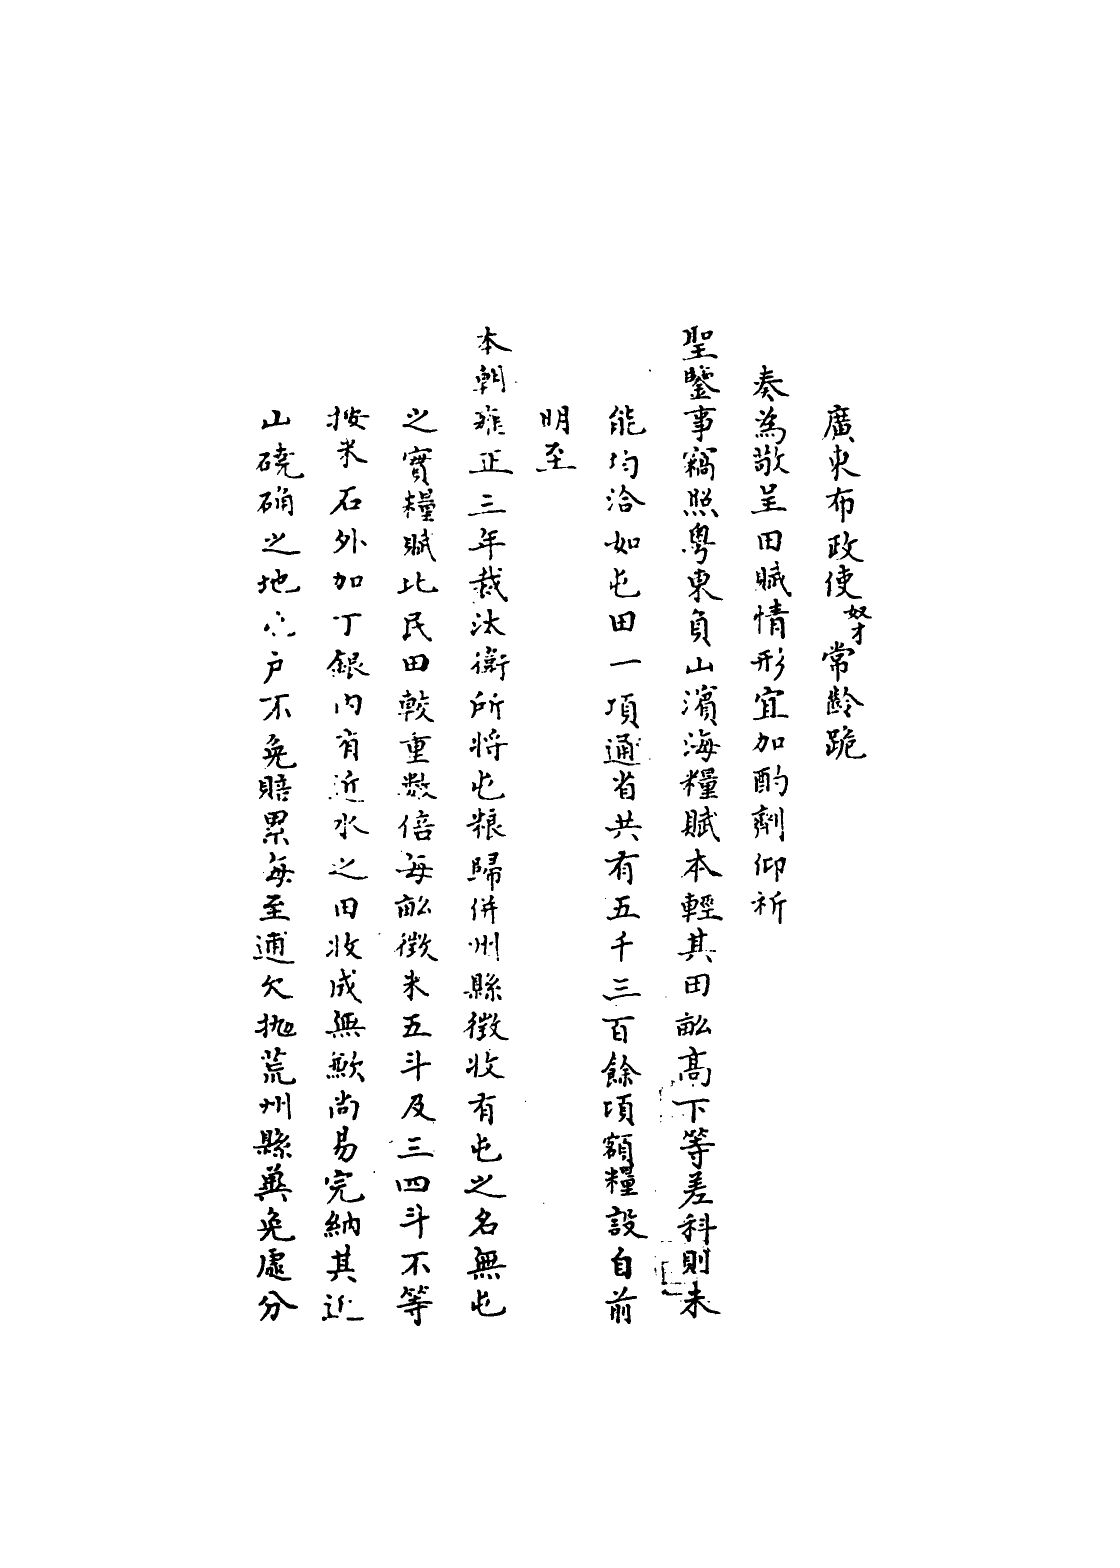 廣東布政使奴才常齡跪
奏為敬呈田賦情形宜加酌劑仰祈
聖鑒事竊照粵東負山濱海糧賦本輕其田畝高下等差科則未
能均洽如屯田一項通省共有五千三百餘項額糧設自前
明至
本朝雍正三年裁汰衛所將屯粮歸併州縣徵收有屯之名無屯
之實糧賦比民田較重数倍每畝徵米五斗及三四斗不等
按米石外加丁銀内有近水之田收成無歉尚易完納其近
山磽确之地戶不免賠累每至逋欠抛荒州縣兾免處分